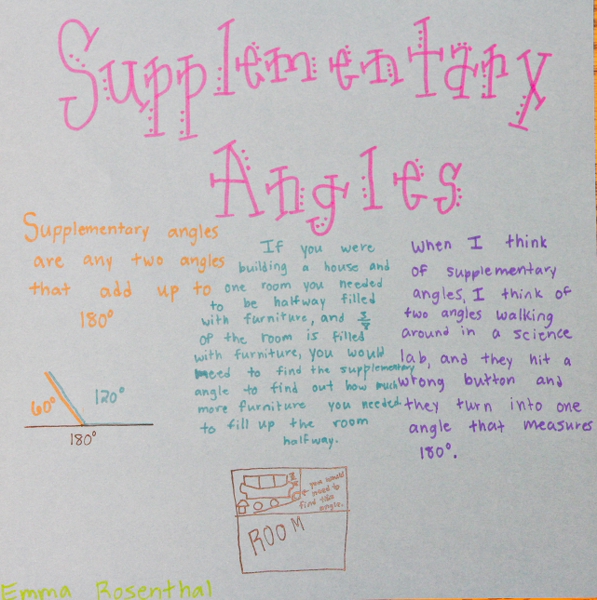 Supplementary
Angles
Supplementary angles
are any two angles
that add up to
180°
If you were
building a house and
one room you needed
to be halfway filled
with furniture, and 3/8
of the room is filled
with furniture, you would
need to find the supplementary
angle to find out how much
more furniture you needed
to fill up the room
halfway.
When I think
of supplementary
angles, I think of
two angles walking
around in a science
lab, and they hit a
wrong button and
they turn into one
angle that measures
180°.
60°
120°
180°
you would
need to
find this
angle.
ROOM
Emma Rosenthal